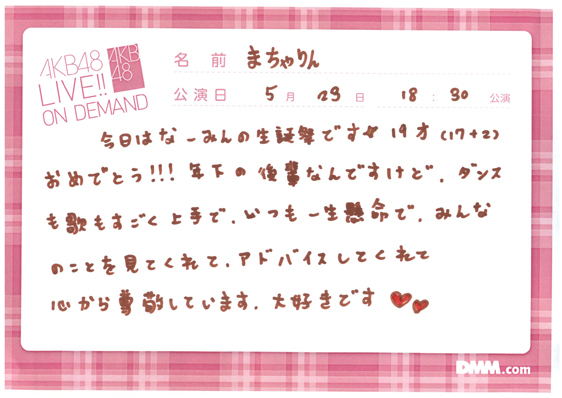 AKB48
LIVE!!
ON DEMAND
AKB
48
名 前 まちゃりん
公演日 5 月 29 日 18 : 30 公演
今日はなーみんの生誕祭です♥ 19才 (17+2)
おめでとう!!! 年下の後輩なんですけど、ダンス
も歌もすごく上手で、いつも一生懸命で、みんな
のことを見てくれて、アドバイスしてくれて
心から尊敬しています。大好きです ♥♥
DMM.com